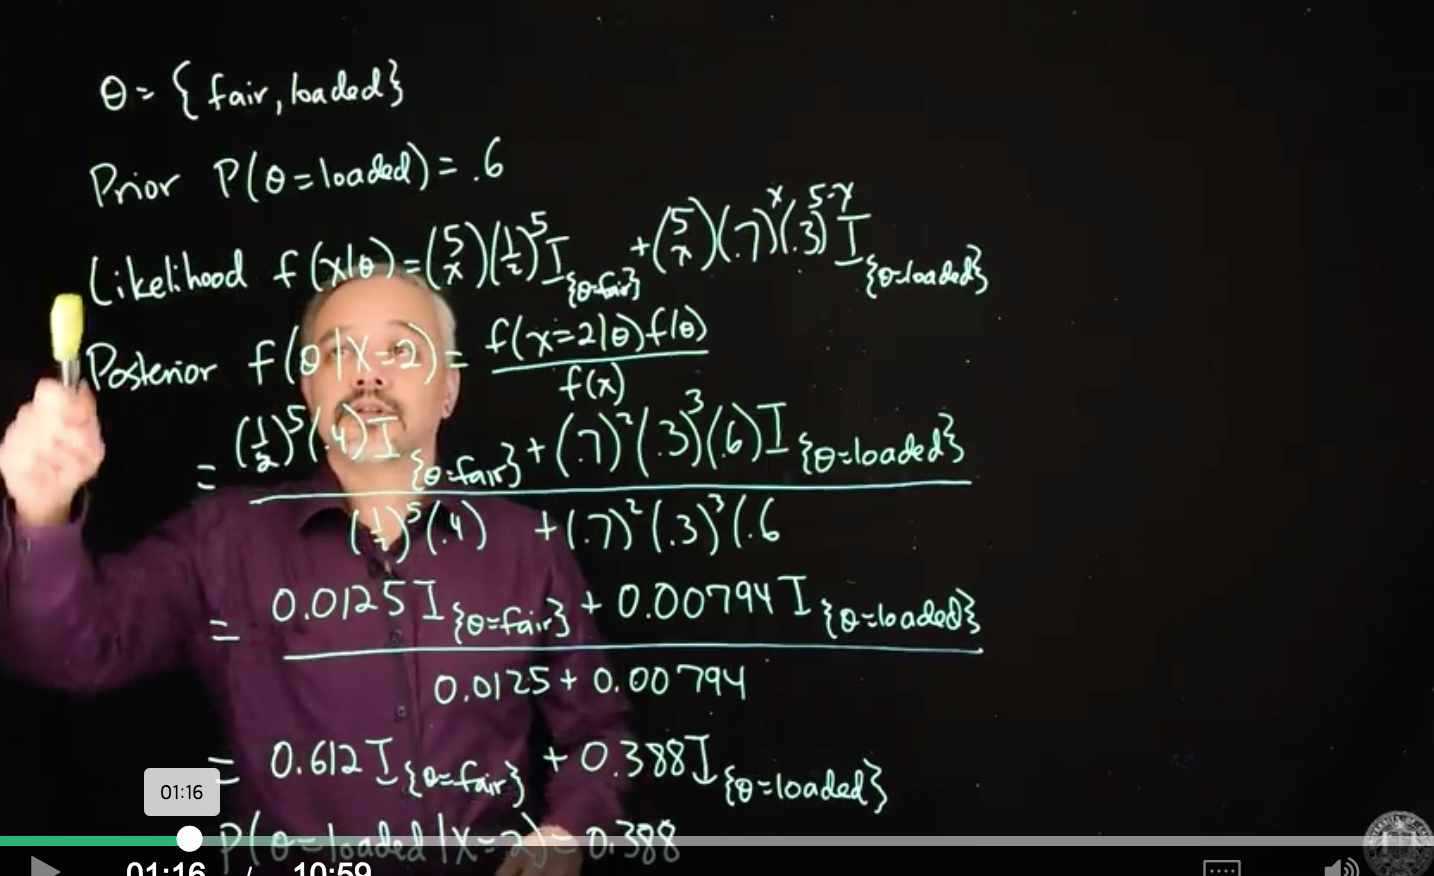 θ = {fair, loaded}
Prior P(θ=loaded) = .6
Likelihood f(x|θ) = (5 x)(1/2)^5 I_{θ=fair} + (5 x)(.7)^x(.3)^5-x I_{θ=loaded}
Posterior f(θ|X=2) = f(x=2|θ)f(θ) / f(x)
= (1/2)^5(.4)I_{θ=fair} + (.7)^2(.3)^3(.6)I_{θ=loaded} / (1/2)^5(.4) + (.7)^2(.3)^3(.6
= 0.0125 I_{θ=fair} + 0.00794 I_{θ=loaded} / 0.0125 + 0.00794
= 0.612 I_{θ=fair} + 0.388 I_{θ=loaded}
01:16
P(θ=loaded|X=2) = 0.388
01:16 / 10:59